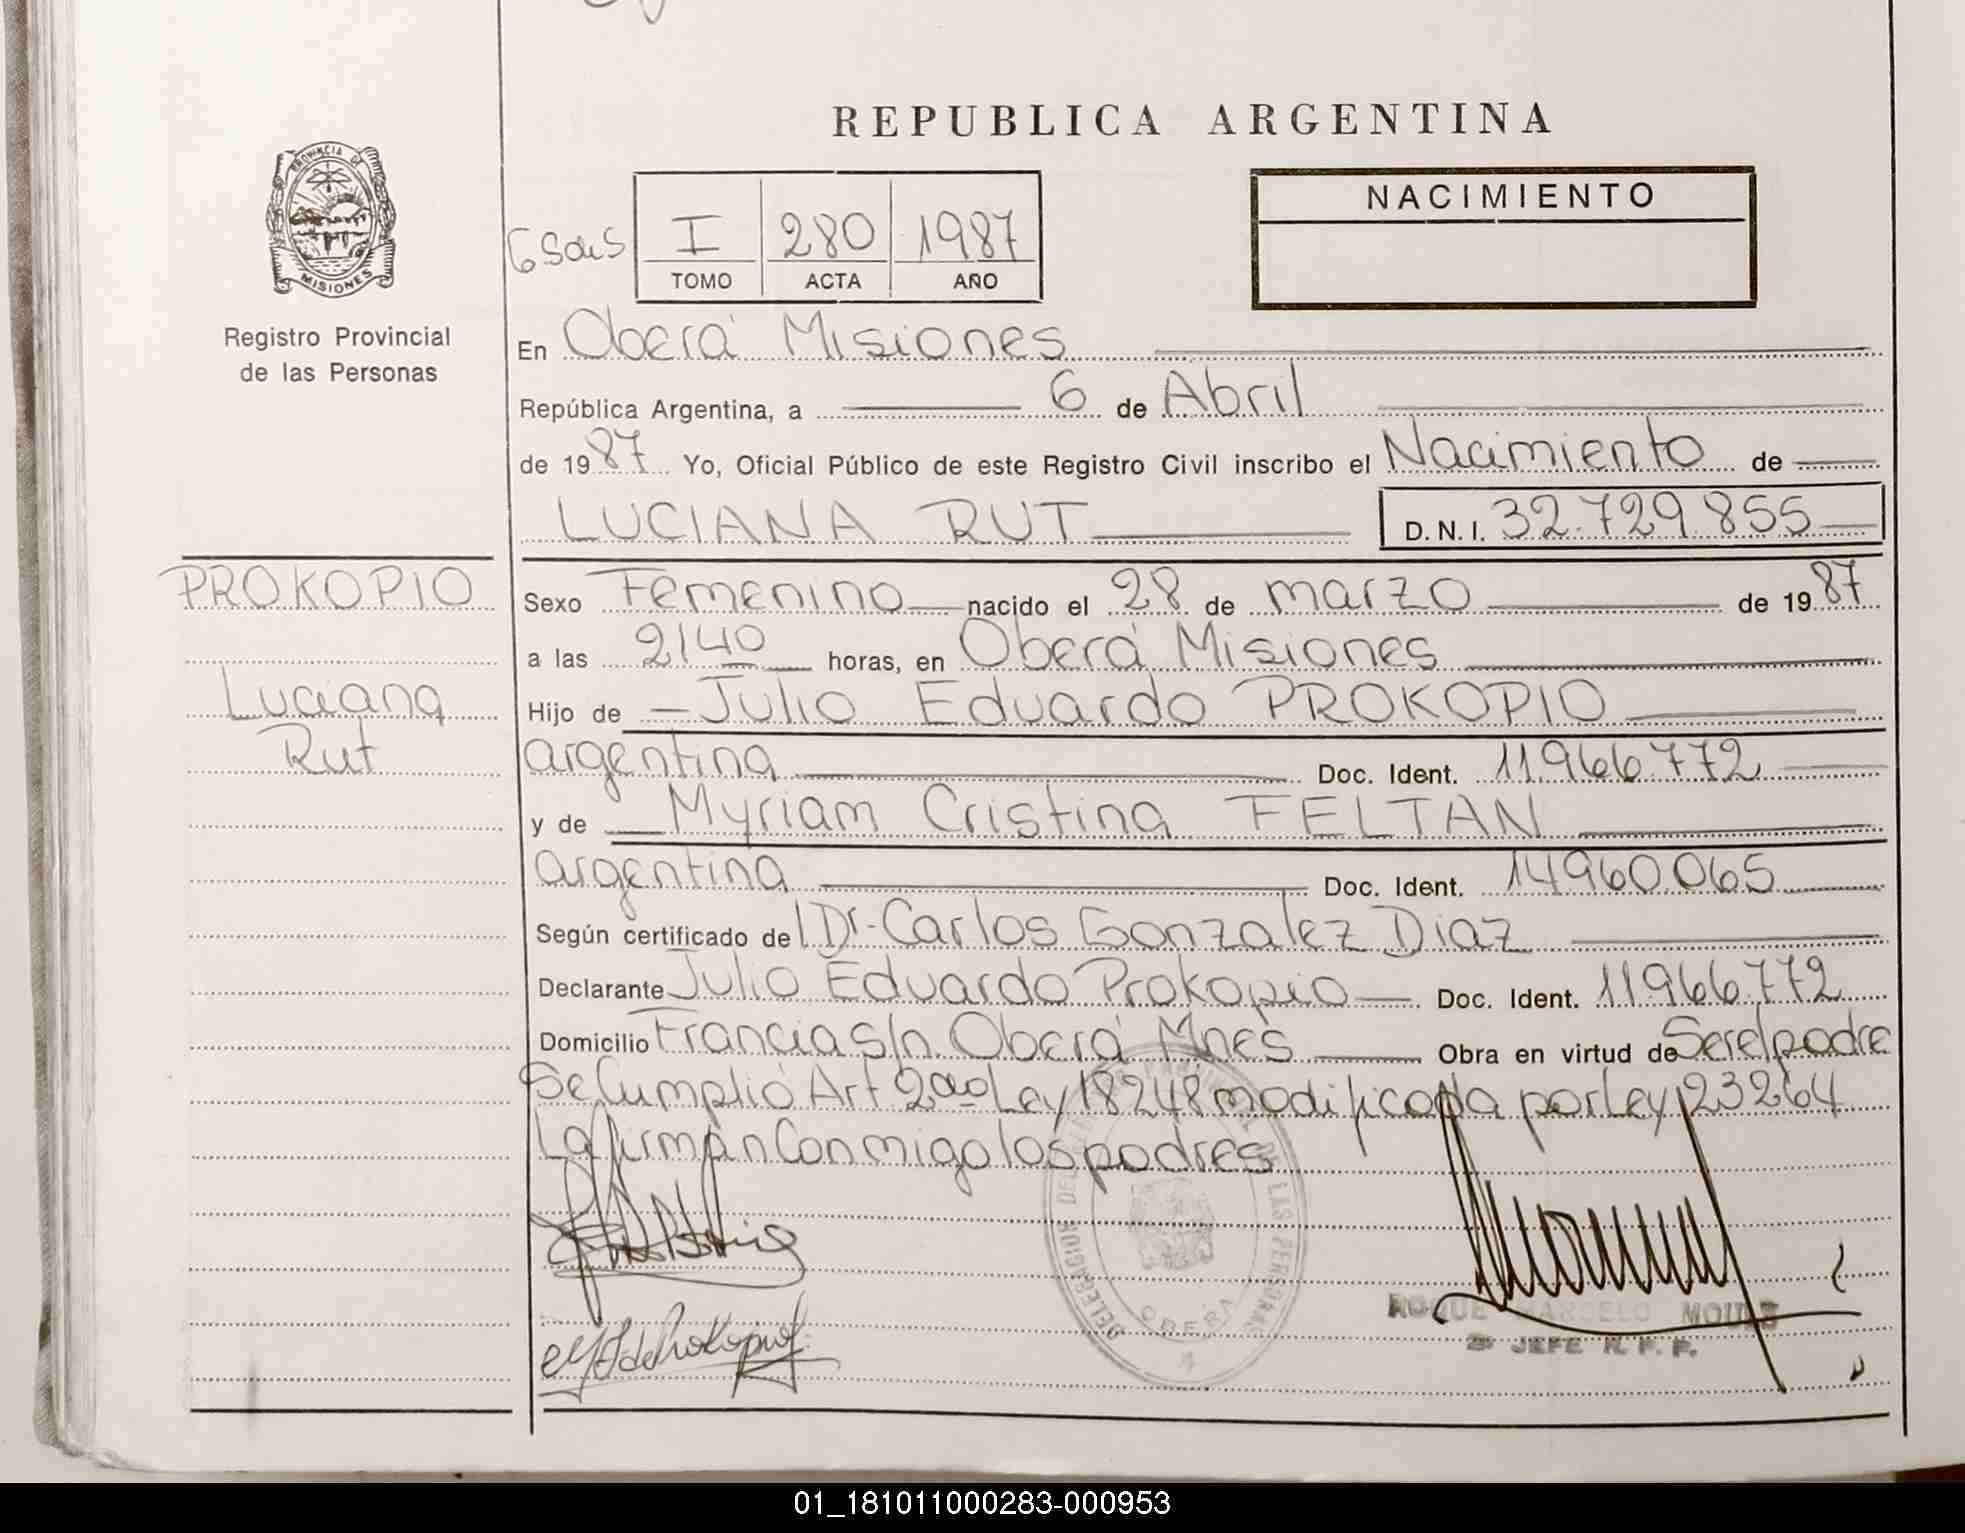 REPUBLICA ARGENTINA
PROVINCIA DE
MISIONES
Registro Provincial
de las Personas
I 280 1987
TOMO ACTA AÑO
NACIMIENTO
En Oberá Misiones
República Argentina, a 6 de Abril
de 1987 Yo, Oficial Público de este Registro Civil inscribo el Nacimiento de
LUCIANA RUT D.N.I. 32.729.855
PROKOPIO
Luciana
Rut
Sexo Femenino nacido el 28 de marzo de 1987
a las 2140 horas, en Oberá Misiones
Hijo de Julio Eduardo PROKOPIO
argentina Doc. Ident. 11.966.772
y de Myriam Cristina FELTAN
argentina Doc. Ident. 14960.065
Según certificado del Dr. Carlos Gonzalez Diaz
Declarante Julio Eduardo Prokopio Doc. Ident. 11966.772
Domicilio Francia S/n Oberá Mnes Obra en virtud de Ser el padre
Se Cumplió Art 2do Ley 18248 modificada por Ley 23264
La firman Conmigo los padres
DELEGACION DEL REGISTRO PROVINCIAL DE LAS PERSONAS
OBERA
ROQUE MARCELO
2º JEFE R. P. P.
01_181011000283-000953